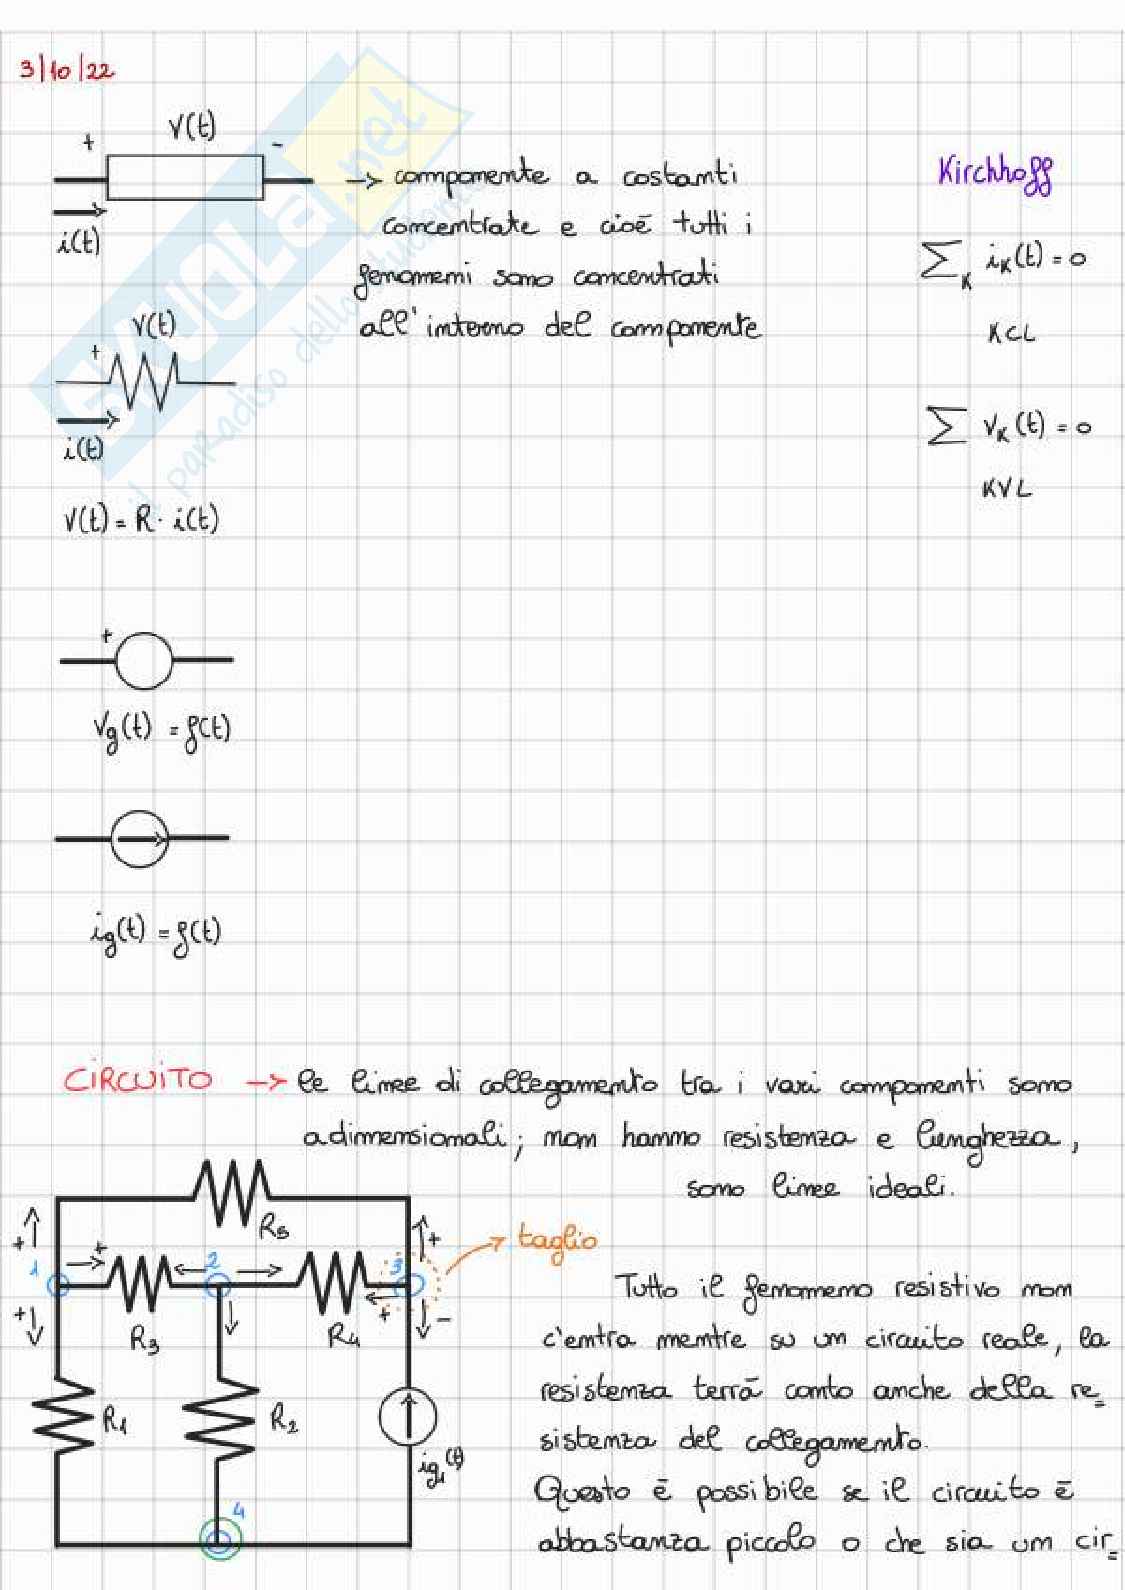 3/10/22
V(t)
+ -
i(t)
→ componente a costanti
concentrate e cioē tutti i
fenomeni sono concentrati
all'interno del componente
Kirchhoff
∑K iK(t) = 0
KCL
∑ VK(t) = 0
KVL
V(t)
+
i(t)
V(t) = R · i(t)
+
Vg(t) = f(t)
ig(t) = f(t)
SKUOLA.net
il paradiso dello studente
CIRCUITO → le linee di collegamento tra i vari componenti sono
adimensionali; non hanno resistenza e lunghezza,
sono linee ideali.
R5
+ + 1 2 3 +
→ taglio
+ R3 R4 + -
R1 R2
ig1(t)
4
Tutto il fenomeno resistivo non
c'entra mentre su un circuito reale, la
resistenza terrā conto anche della re=
sistenza del collegamento.
Questo ē possibile se il circuito ē
abbastanza piccolo o che sia un cir=